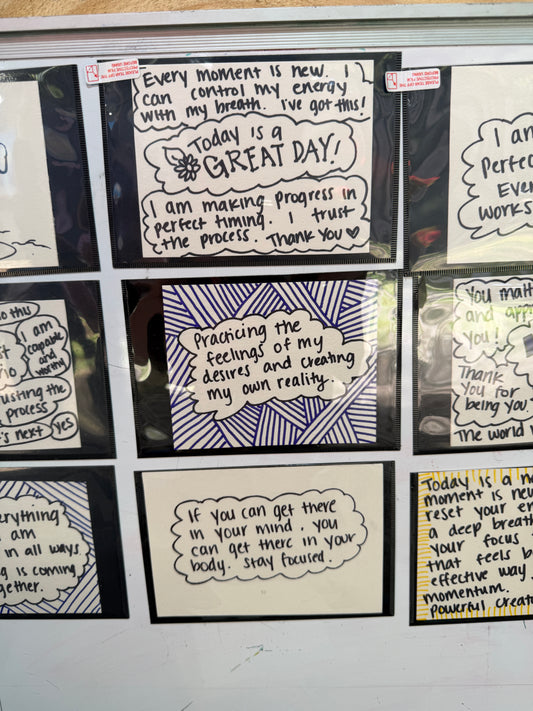 PLEASE TEAR OFF THE
PROTECTIVE FILM
BEFORE USING
PLEASE TEAR OFF THE
PROTECTIVE FILM
BEFORE USING
Every moment is new. I
can control my energy
with my breath. I've got this!
Today is a
GREAT DAY!
I am making progress in
perfect timing. I trust
the process. Thank you
I am
Perfec
Ever
works
o this
I am
capable
and
worthy
usting the
process
's next
yes
Practicing the
feelings of my
desires and creating
my own reality.
You matt
and app
you!
Thank
you for
being you.
The world
erything
am
in all ways.
g is coming
gether.
If you can get there
in your mind. you
can get there in your
body. Stay focused.
Today is a n
moment is new
reset your en
a deep breath
your focus
that feels b
effective way
momentum.
powerful creat